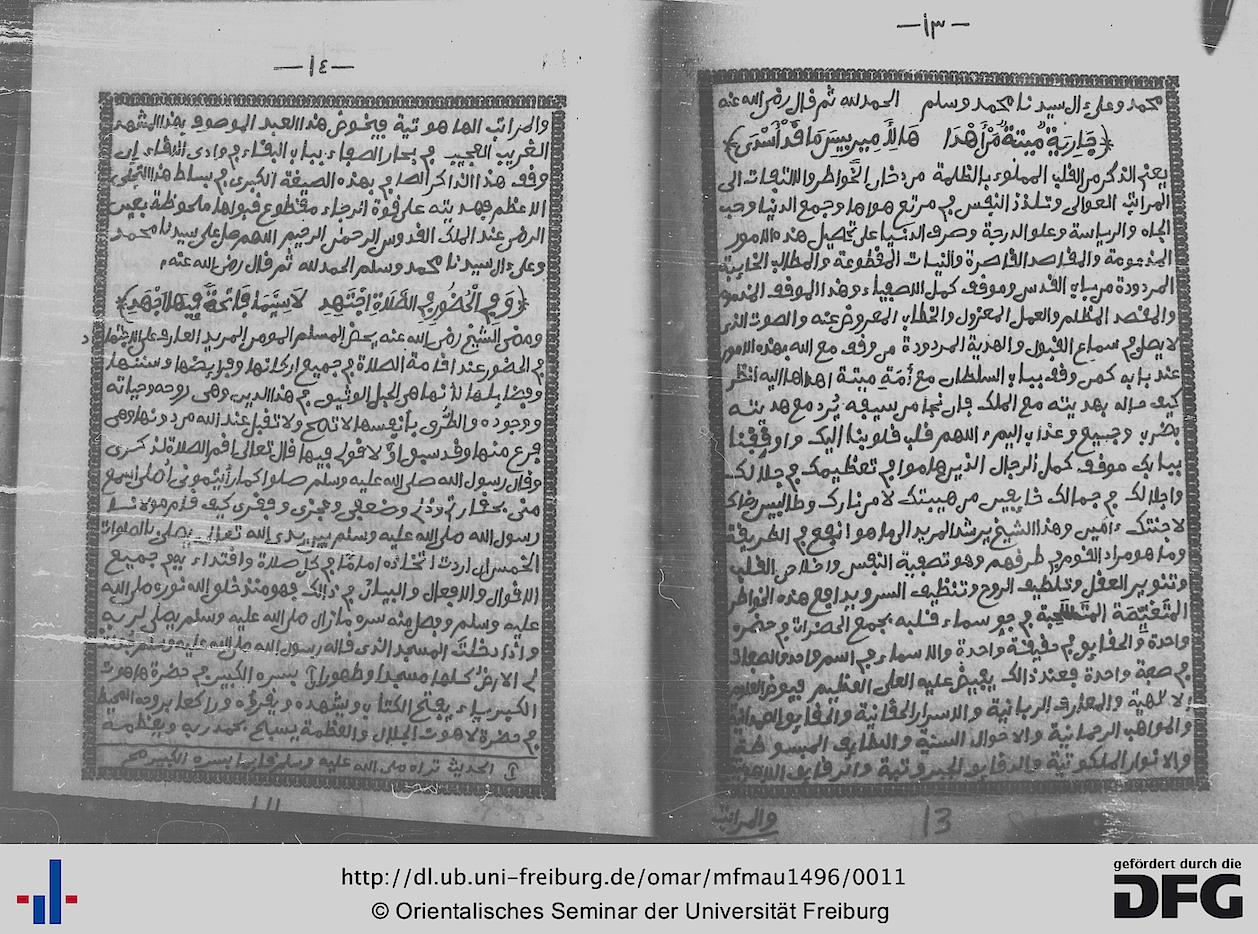 —١٣—
محمد وعلى ءال سيدنا محمد وسلم الحمد لله ثم قال رضي الله عنه
﴿جارية ميتة من أهدا هالأمير بيس ما قد أسدى﴾
يعني الذكر من القلب المملوء بالظلمة من دخان الخواطر والالتجات الى
المراتب العوالى وتلذذ النفس في مرتع هواها وجمع الدنيا وحب
الجاه والرياسة وعلو الدرجة وصرف الدنيا على تحصيل هذه الامور
المذمومة والمقاصد القاصرة والنيات المقطوعة والمطالب الخايبة
المردودة من باب القدس وموقف كمل الاصفياء وهذا الموقف المذموم
والمقصد المظلم والعمل المعزول والخطاب المعروض عنه والصوت الذي
لا يصل في سماع القبول والهدية المردودة من وقف مع الله بهذه الامور
عند بابه كمن وقف بباب السلطان مع أمة ميتة اهداها اليه انظر
كيف حاله بهديته مع الملك فإن نجا من سيفه يُرد مع هديته
بضرب وجيع وعذاب اليم اللهم قلب قلوبنا اليك واوقفنا
ببابك موقف كمل الرجال الذين هاموا في تعظيمك في جلالك
واجلالك في جمالك خايفين من هيبتك لا من نارك وطالبين رضاك
لا جنتك ءامين وهذا الشيخ يرشد المريد الى ما هو انفع في الطريقة
وما هو مراد القوم في طرقهم وهو تصفية النفس واخلاص القلب
وتنوير العقل وتلطيف الروح وتنظيف السر ويدافع هذه الخواطر
في جو سماء قلبه بجمع الحضرات في حضرة
واحدة والحقايق في حقيقة واحدة والاسماء في اسم واحد والصفات
في صفة واحدة فعند ذالك يفيض عليه العلي العظيم فيوض العلوم
الالهية والمعارف الربانية والاسرار الحقانية والحقايق الصمدانية
والمواهب الرحمانية والاحوال السنية واللطايف المبسوطة
والانوار الملكوتية والدقايق الجبروتية والرقايق اللاهوتية
والمراتب
13
—١٤—
والمراتب الهاهوتية فيخوض هذا العبد الموصوف بهذا المشهد
الغريب العجيب في بحار الصفاء بباب البقاء في وادى اللقاء إن
وقف هذا الذاكر الصافي بهذه الصيغة الكبرى في بساط هذا التجلى
الاعظم فهديته على قوة الرجاء مقطوع قبولها ملحوظة بعين
الرضى عند الملك القدوس الرحمن الرحيم اللهم صل على سيدنا محمد
وعلى ءال سيدنا محمد وسلم الحمد لله ثم قال رضي الله عنه
﴿وفي الحضور في الصلاة اجتهد لاسيما فاتحة فيها اجهد﴾
ومضى الشيخ رضي الله عنه يحض المسلم المومن المريد العارف على الاجتهاد
في الحضور عند اقامة الصلاة في جميع اركانها وفرايضها وسننها
وفضايلها لأنها هي الحبل الوثيق في هذا الدين وهى روحه وحياته
ووجوده والطرق بأنفسها لا تصح ولا تقبل عند الله من دونها وهى
فرع منها وقد سبق اولا قولى فيها قال تعالى اقم الصلاة لذكرى
وقال رسول الله صلى الله عليه وسلم صلوا كما رأيتمونى أصلى اسمع
منى بحقارتى وذلى وضعفى وعجزى وفقرى كيف قام مولانا
رسول الله صلى الله عليه وسلم بين يدى الله تعالى يصلى بالصلوات
الخمس إن اردت اتخاذه إماما في كل صلاة واقتداء به في جميع
الاقوال والافعال والبيان في ذالك فهو منذ خلق الله نوره صلى الله
عليه وسلم وفصل منه سره مازال صلى الله عليه وسلم يصلى لربه
واذا دخلت المسجد الذى قاله رسول الله صلى الله عليه وسلم جعلت
لى الارض كلها مسجدا وطهورا تراه بسره الكبير في حضرة هاهوت
الكبرياء يفتح الكتاب ويشهده ويقرؤه وراكعا بروحه المحيط
في حضرة لاهوت الجلال والعظمة يسبح بحمد ربه ويعظمه
الحديث تراه صلى الله عليه وسلم قايما بسره الكبير صح
http://dl.ub.uni-freiburg.de/omar/mfmau1496/0011
© Orientalisches Seminar der Universität Freiburg
gefördert durch die
DFG